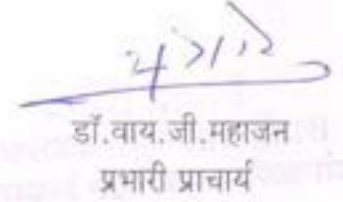 डॉ.वाय.जी.महाजन
प्रभारी प्राचार्य